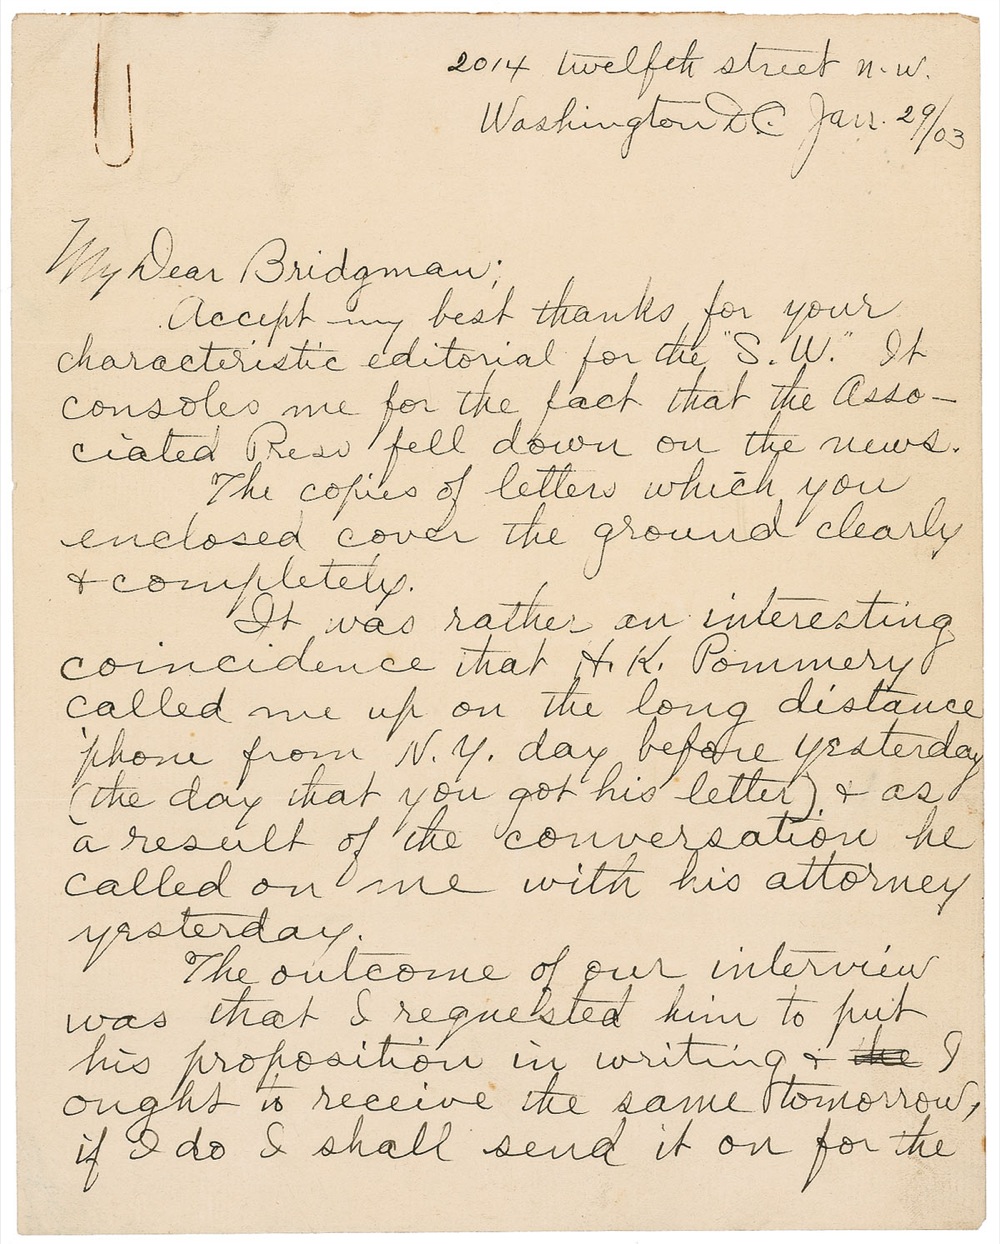 2014 twelfth street n.w.
Washington D.C. Jan. 29/03
My Dear Bridgman;
Accept my best thanks for your
characteristic editorial for the "S.W." It
consoles me for the fact that the Asso-
ciated Press fell down on the news.
The copies of letters which you
enclosed cover the ground clearly
& completely.
It was rather an interesting
coincidence that H.K. Pommery
called me up on the long distance
'phone from N.Y. day before yesterday
(the day that you got his letter) & as
a result of the conversation he
called on me with his attorney
yesterday.
The outcome of our interview
was that I requested him to put
his proposition in writing & the I
ought to receive the same tomorrow,
if I do I shall send it on for the